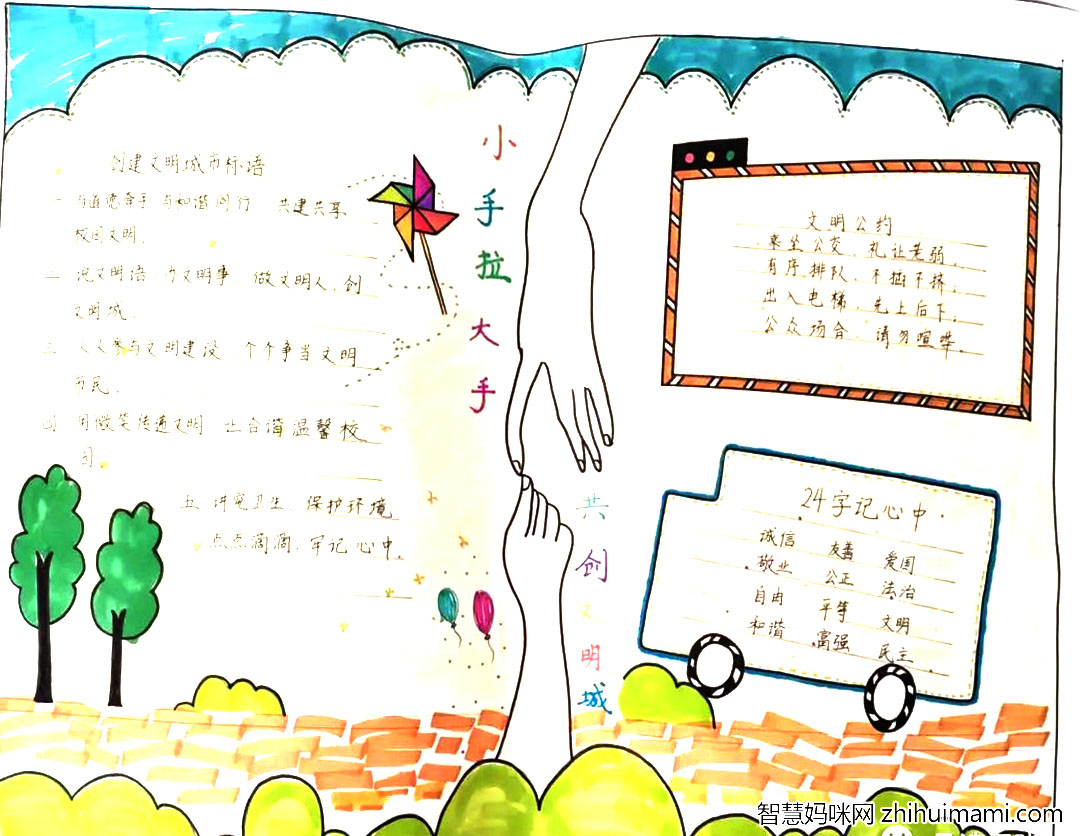 创建文明城市标语
一 与道德牵手 与和谐同行 共建共享
校园文明.
二 说文明语. 办文明事 做文明人. 创
文明城.
三 人人参与文明建设 个个争当文明
市民.
四 用微笑传递文明 让合谐温馨校
园
五 讲究卫生. 保护环境
点点滴滴. 牢记心中.
小手拉大手
共创文明城
文明公约
乘坐公交, 礼让老弱.
有序排队, 不插不挤.
出入电梯, 先上后下.
公众场合, 请勿喧哗.
24字记心中.
诚信 友善 爱国
敬业 公正 法治
自由 平等 文明
和谐 富强 民主
智慧妈咪网 zhihuimami.com